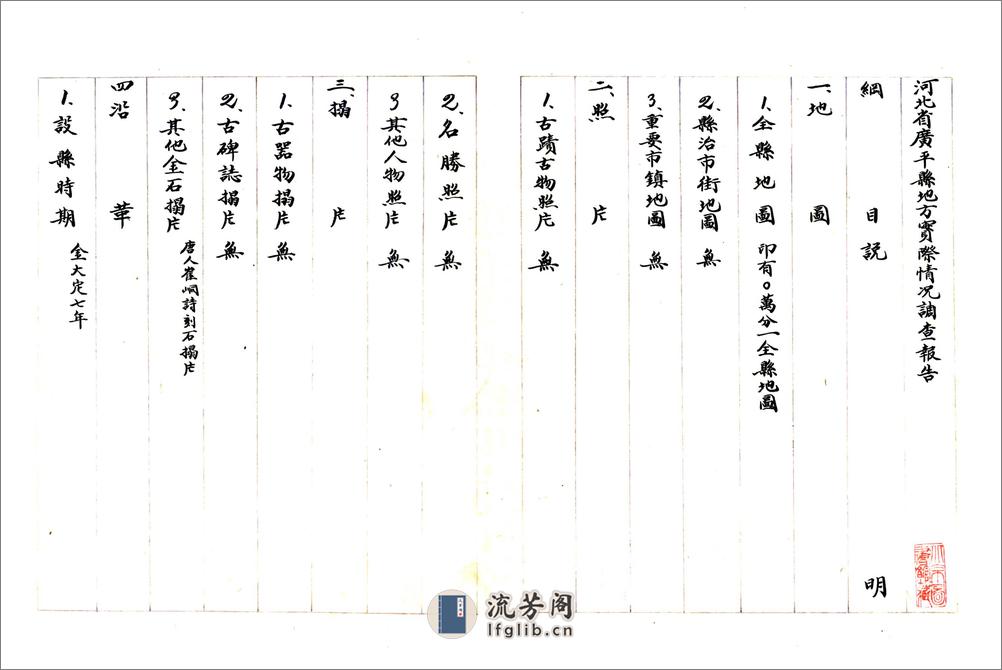 河北省廣平縣地方實際情况調查報告
綱目說明
一、地圖
1、全縣地圖 印有○萬分一全縣地圖
2、縣治市街地圖 無
3、重要市鎮地圖 無
二、照片
1、古蹟古物照片 無
2、名勝照片 無
3、其他人物照片 無
三、搨片
1、古器物搨片 無
2、古碑誌搨片 無
3、其他金石搨片 唐人崔峒詩刻石搨片
四沿革
1、設縣時期 金大定七年
流芳阁
lfglib.cn